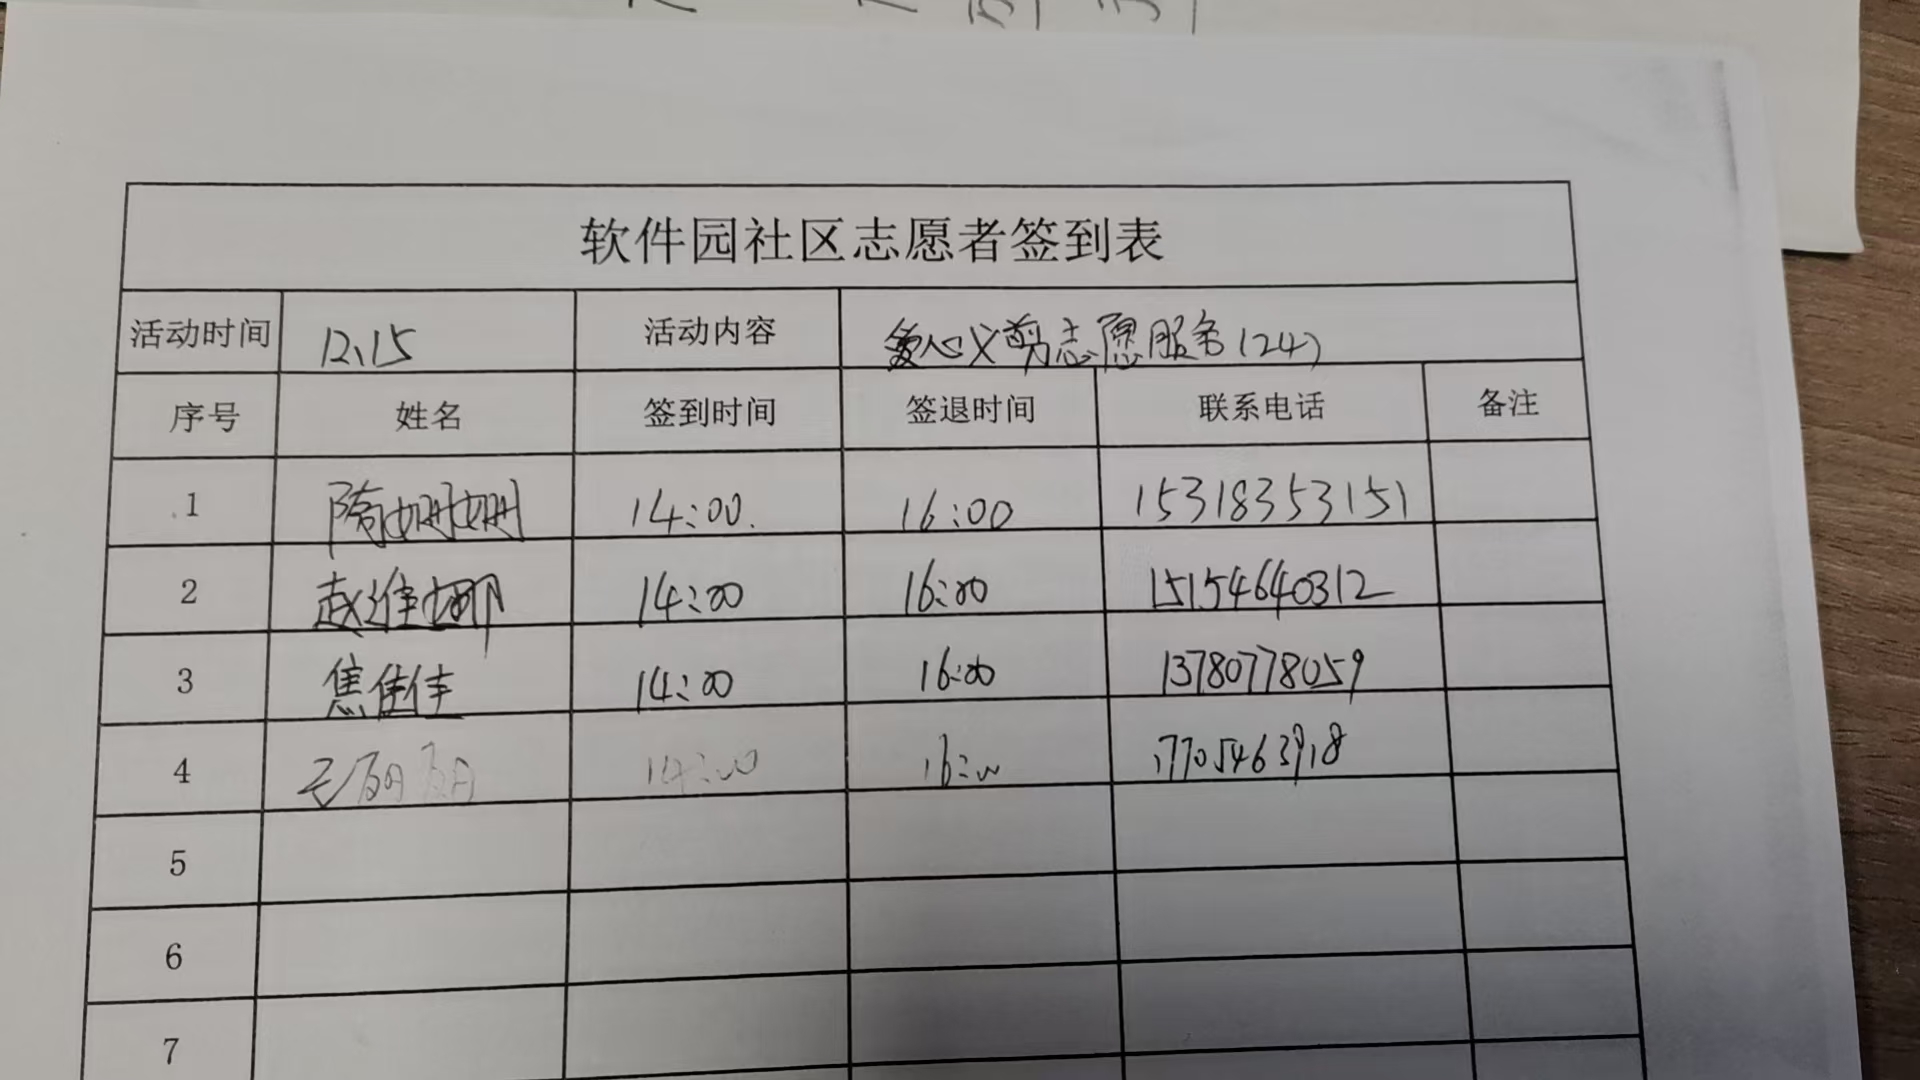 软件园社区志愿者签到表
活动时间 12、15 活动内容 爱心义剪志愿服务(24)
序号 姓名 签到时间 签退时间 联系电话 备注
1 隋姗姗 14:00 16:00 15318353151
2 赵维娜 14:00 16:00 15154640312
3 焦佳佳 14:00 16:00 13780778059
4 王丽丽 14:00 16:00 17705463918
5
6
7